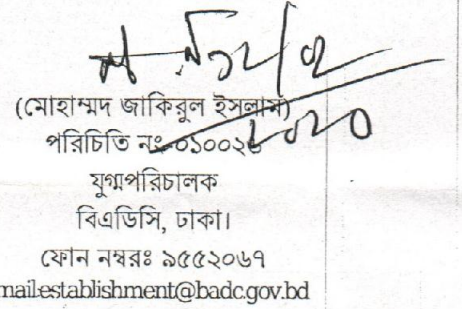 (মোহাম্মদ জাকিরুল ইসলাম)
পরিচিতি নং-০১০০২৬
যুগ্মপরিচালক
বিএডিসি, ঢাকা।
ফোন নম্বরঃ ৯৫৫২০৬৭
mail:establishment@badc.gov.bd